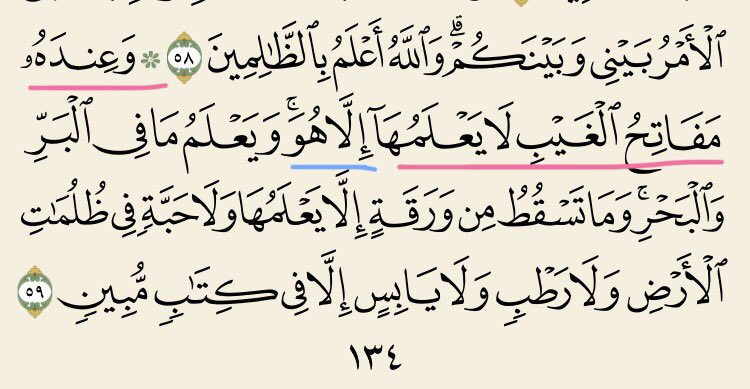 ٱلْأَمْرُ بَيْنِى وَبَيْنَكُمْ ۗ وَٱللَّهُ أَعْلَمُ بِٱلظَّـٰلِمِينَ ٥٨ ۞ وَعِندَهُۥ
مَفَاتِحُ ٱلْغَيْبِ لَا يَعْلَمُهَآ إِلَّا هُوَ ۚ وَيَعْلَمُ مَا فِى ٱلْبَرِّ
وَٱلْبَحْرِ ۚ وَمَا تَسْقُطُ مِن وَرَقَةٍ إِلَّا يَعْلَمُهَا وَلَا حَبَّةٍ فِى ظُلُمَـٰتِ
ٱلْأَرْضِ وَلَا رَطْبٍ وَلَا يَابِسٍ إِلَّا فِى كِتَـٰبٍ مُّبِينٍ ٥٩
١٣٤